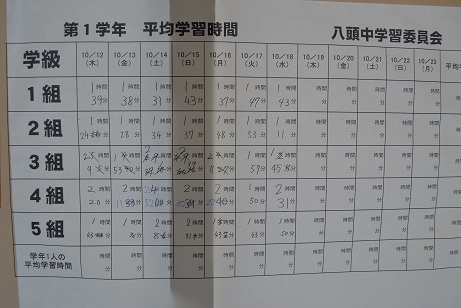 第1学年 平均学習時間 八頭中学習委員会
学級 10/12 10/13 10/14 10/15 10/16 10/17 10/18 10/19 10/20 10/21 10/22 10/23 平均
(木) (金) (土) (日) (月) (火) (水) (木) (金) (土) (日) (月)
1組 1時間 1時間 1時間 1時間 1時間 1時間 1時間 時間 時間 時間 時間 時間
39分 38分 31分 43分 37分 47分 43分 分 分 分 分 分
2組 1時間 1時間 1時間 1時間 1時間 1時間 1時間 時間 時間 時間 時間 時間
24分 28分 34分 37分 48分 53分 11分 分 分 分 分 分
3組 時間 時間 時間 時間 時間 1時間 時間 時間 時間 時間 時間 時間
分 分 分 分 分 57分 分 分 分 分 分 分
4組 2時間 2時間 時間 2時間 2時間 1時間 2時間 時間 時間 時間 時間 時間
20分 分 分 分 分 50分 31分 分 分 分 分 分
5組 1時間 1時間 2時間 2時間 時間 1時間 1時間 時間 時間 時間 時間 時間
分 分 分 分 分 63分 50分 分 分 分 分 分
学年1人の 時間 時間 時間 時間 時間 時間 時間 時間 時間 時間 時間 時間
平均学習時間 分 分 分 分 分 分 分 分 分 分 分 分